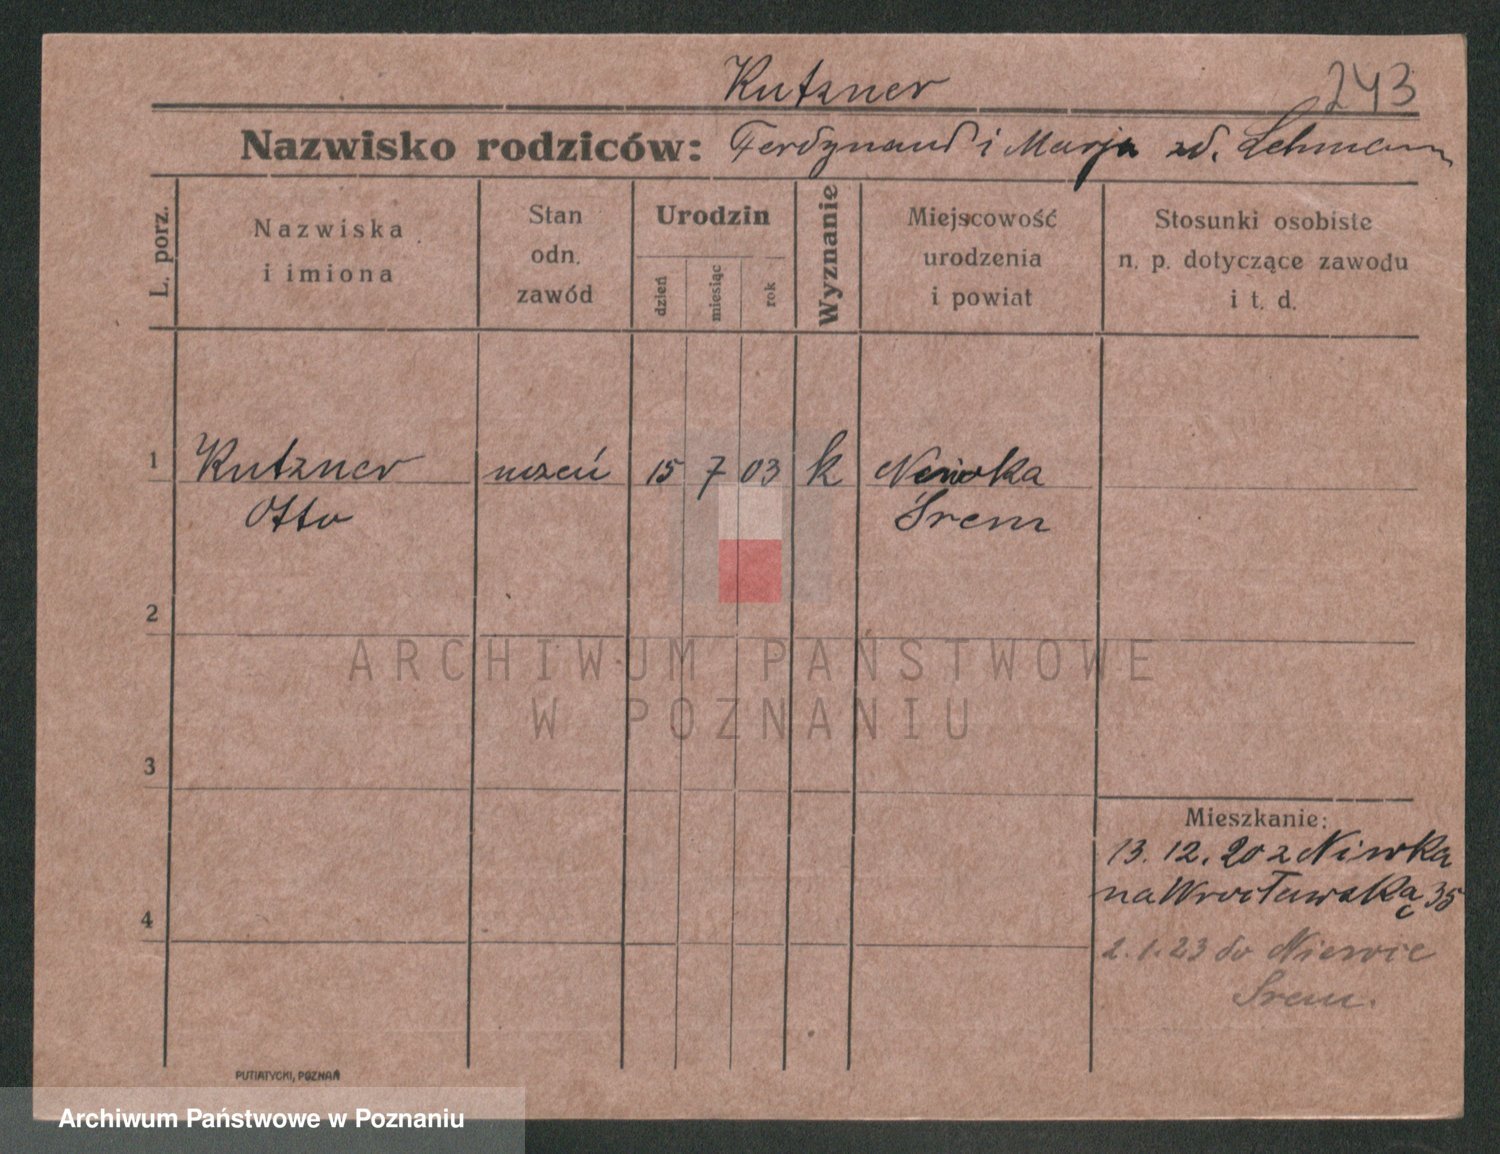 Kutzner
243
Nazwisko rodziców: Ferdynand i Marja zd. Lehmann
L. porz.
Nazwiska
i imiona
Stan
odn.
zawód
Urodzin
dzień
miesiąc
rok
Wyznanie
Miejscowość
urodzenia
i powiat
Stosunki osobiste
n. p. dotyczące zawodu
i t. d.
1 Kutzner uczeń 15 7 03 k
Otto Śrem
2
ARCHIWUM PAŃSTWOWE
W POZNANIU
3
Mieszkanie:
13. 12. 20 z Niwka
na Wrocławską 35
4
2.1.23 do
Śrem.
PUTIATYCKI, POZNAŃ
Archiwum Państwowe w Poznaniu